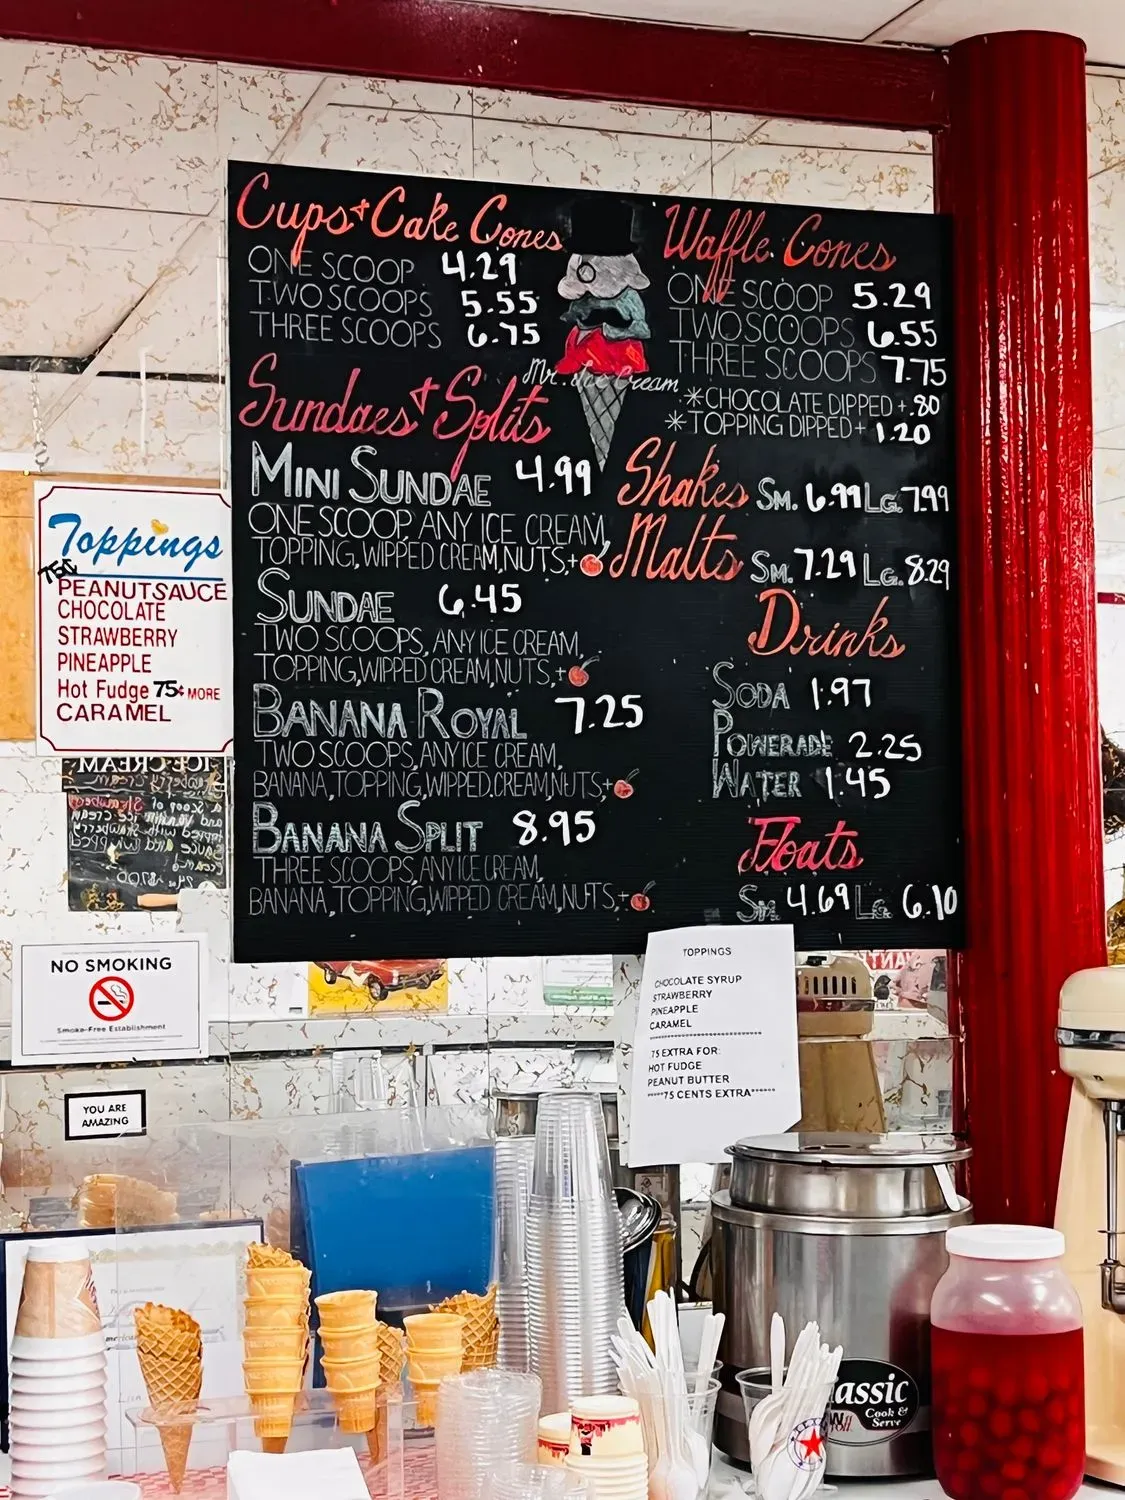 Cups + Cake Cones
ONE SCOOP 4.29
TWO SCOOPS 5.55
THREE SCOOPS 6.75
Waffle Cones
ONE SCOOP 5.29
TWO SCOOPS 6.55
THREE SCOOPS 7.75
*CHOCOLATE DIPPED +.80
*TOPPING DIPPED + 1.20
Mr. Ice Cream
Sundaes + Splits
MINI SUNDAE 4.99
ONE SCOOP, ANY ICE CREAM,
TOPPING, WIPPED CREAM, NUTS, +
SUNDAE 6.45
TWO SCOOPS, ANY ICE CREAM,
TOPPING, WIPPED CREAM, NUTS, +
BANANA ROYAL 7.25
TWO SCOOPS, ANY ICE CREAM,
BANANA, TOPPING, WIPPED CREAM, NUTS, +
BANANA SPLIT 8.95
THREE SCOOPS, ANY ICE CREAM,
BANANA, TOPPING, WIPPED CREAM, NUTS, +
Shakes SM. 6.99 LG. 7.99
Malts SM. 7.29 LG. 8.29
Drinks
SODA 1.97
POWERADE 2.25
WATER 1.45
Floats
SM. 4.69 LG. 6.10
Toppings
75¢
PEANUT SAUCE
CHOCOLATE
STRAWBERRY
PINEAPPLE
Hot Fudge 75¢ MORE
CARAMEL
ICE CREAM
NO SMOKING
Smoke-Free Establishment
YOU ARE
AMAZING
TOPPINGS
CHOCOLATE SYRUP
STRAWBERRY
PINEAPPLE
CARAMEL
75 EXTRA FOR:
HOT FUDGE
PEANUT BUTTER
*****75 CENTS EXTRA******
assic
Cook &
Serve